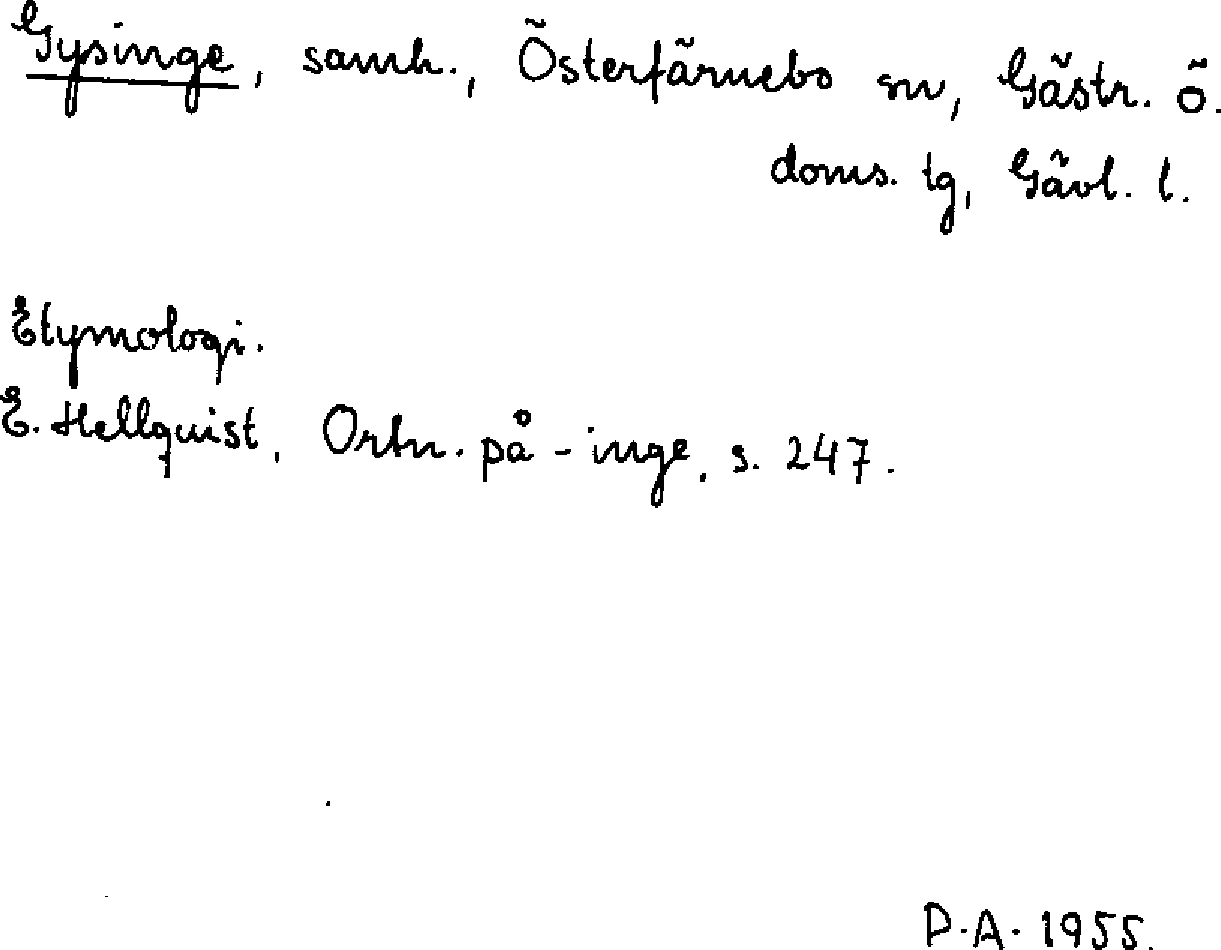 Gysinge, samh., Österfärnebo sn, Gästr. ö.
doms. tg, Gävl. l.
Etymologi.
E. Hellquist, Ortn. på -inge, s. 247.
P.A. 1955.